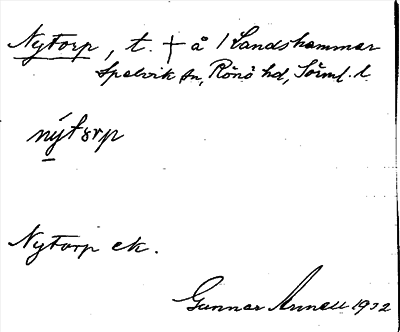 Nytorp, t. † å / Landshammar
Spelvik sn, Rönö hd, Sörml. l.
nýtorp
Nytorp ek.
Gunnar Annell 1932